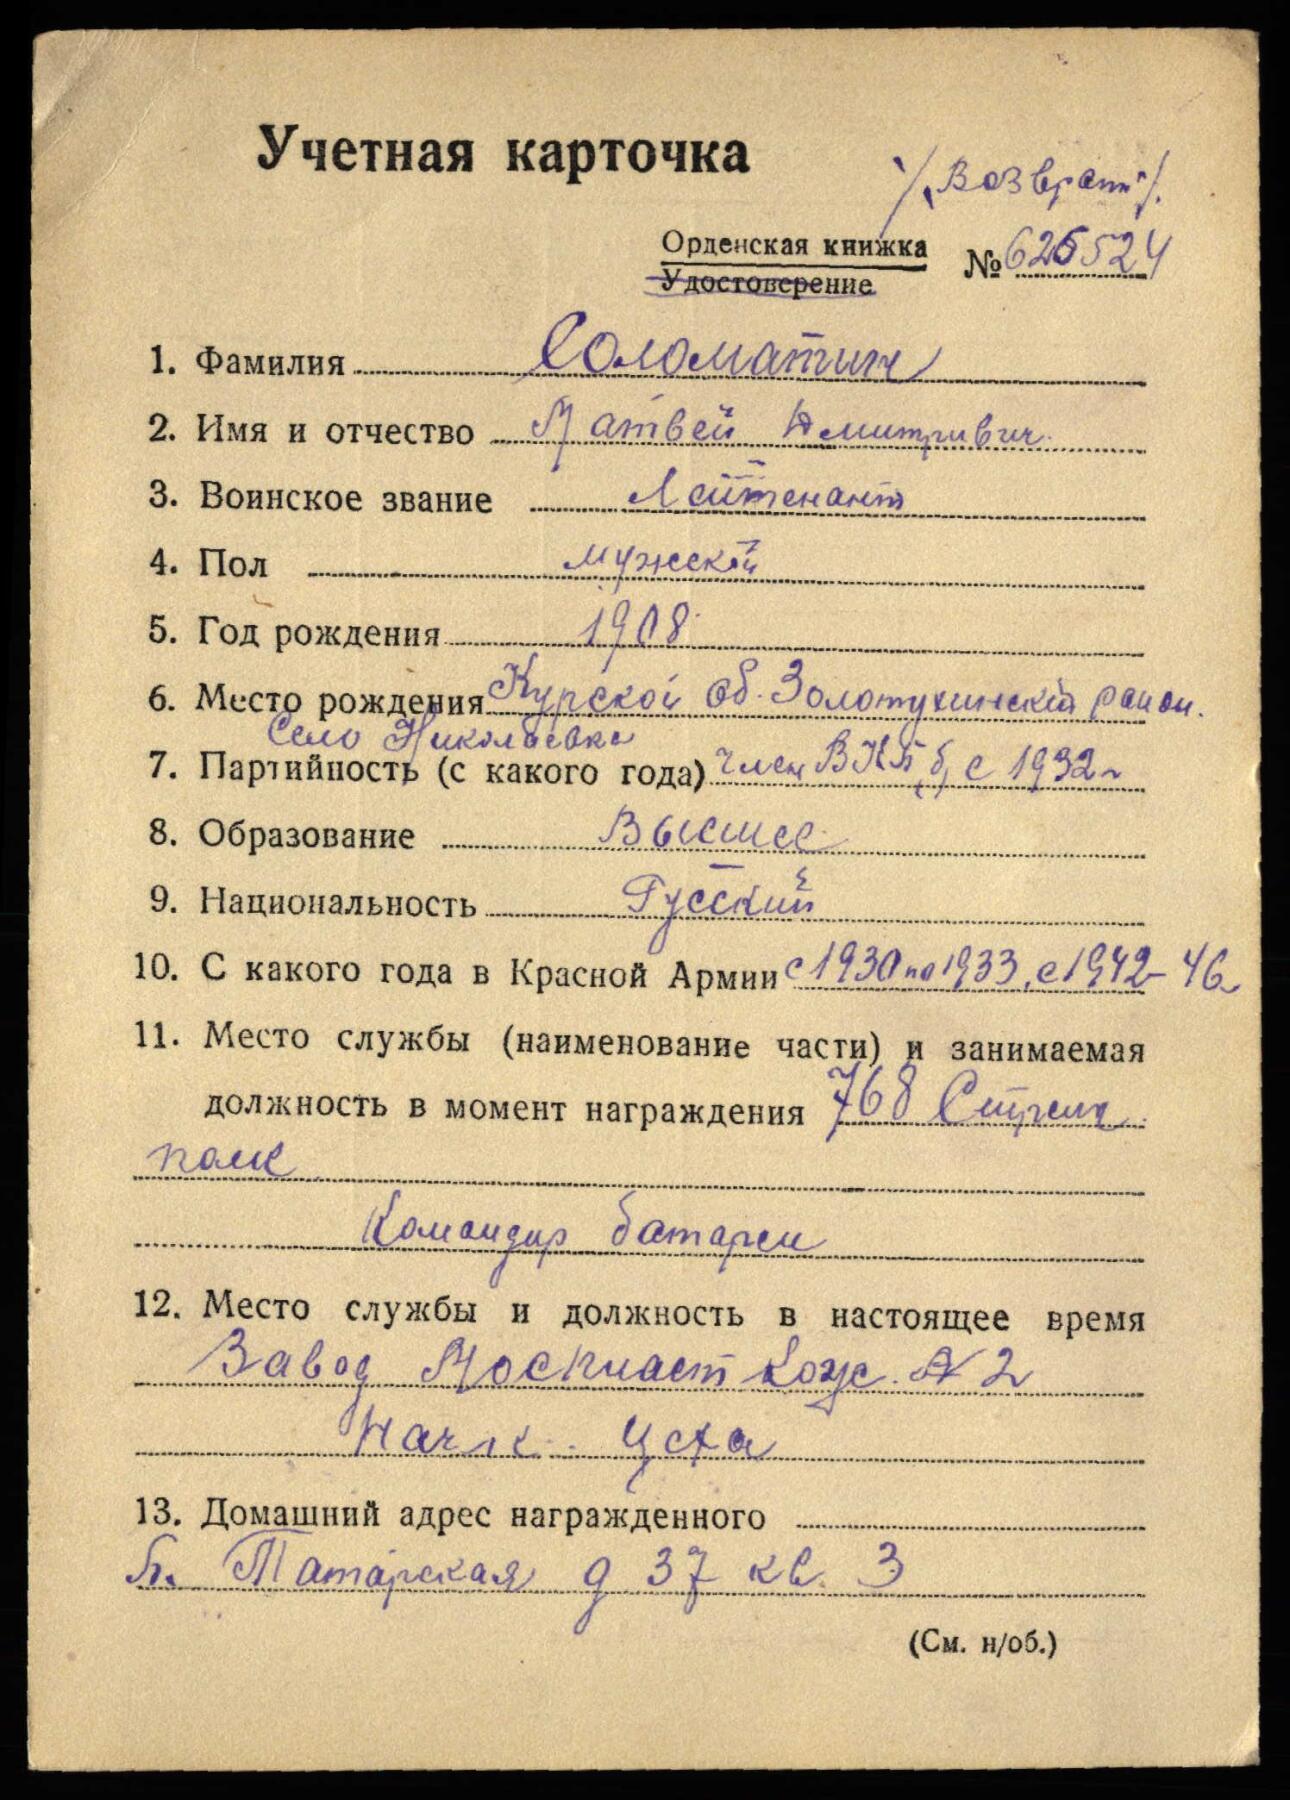 Учетная карточка
/„Возврат"/.
Орденская книжка № 626524
Удостоверение
1. Фамилия Соломатин
2. Имя и отчество Матвей Дмитривич
3. Воинское звание Лейтенант
4. Пол мужской
5. Год рождения 1908
6. Место рождения Курской об. Золотухинский район.
Село Николаевка
7. Партийность (с какого года) член ВКП(б) с 1932 г
8. Образование Высшее
9. Национальность Русский
10. С какого года в Красной Армии с 1930 по 1933, с 1942-46
11. Место службы (наименование части) и занимаемая
должность в момент награждения 768 Стрелк
полк
Командир батареи
12. Место службы и должность в настоящее время
Завод Мосpласт кож. № 2
Начк. цеха
13. Домашний адрес награжденного
Б. Татарская д 37 кв. 3
(См. н/об.)